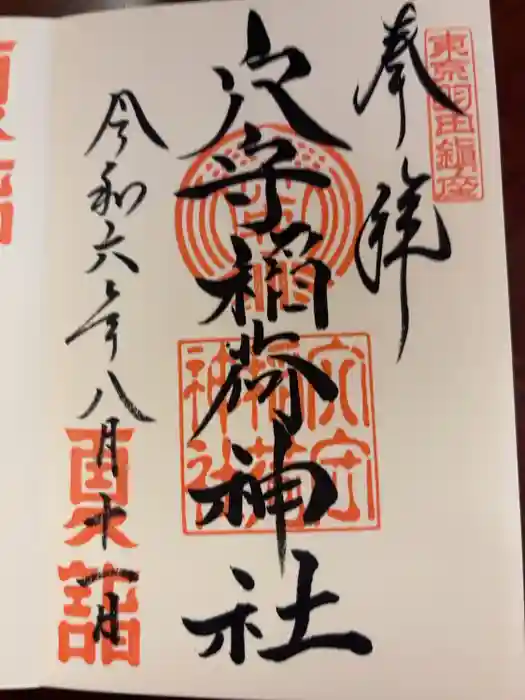 東京羽田鎮座
奉拝
穴守稲荷神社
穴守
稲荷
神社
令和六年八月十一日
夏詣
夏詣